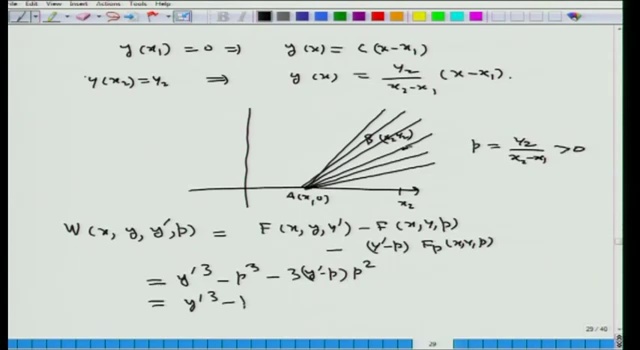 File Edit View Insert Actions Tools Help
y(x₁) = 0 ⇒ y(x) = C(x-x₁)
y(x₂) = y₂ ⇒ y(x) = y₂/(x₂-x₁) (x-x₁).
B(x₂,y₂)
p = y₂/(x₂-x₁) > 0
A(x₁,0)
x₂
W(x, y, y', p) = F(x, y, y') - F(x, y, p)
- (y'-p) Fp(x,y,p)
= y'³ - p³ - 3(y'-p)p²
= y'³ - 
29 / 40
29